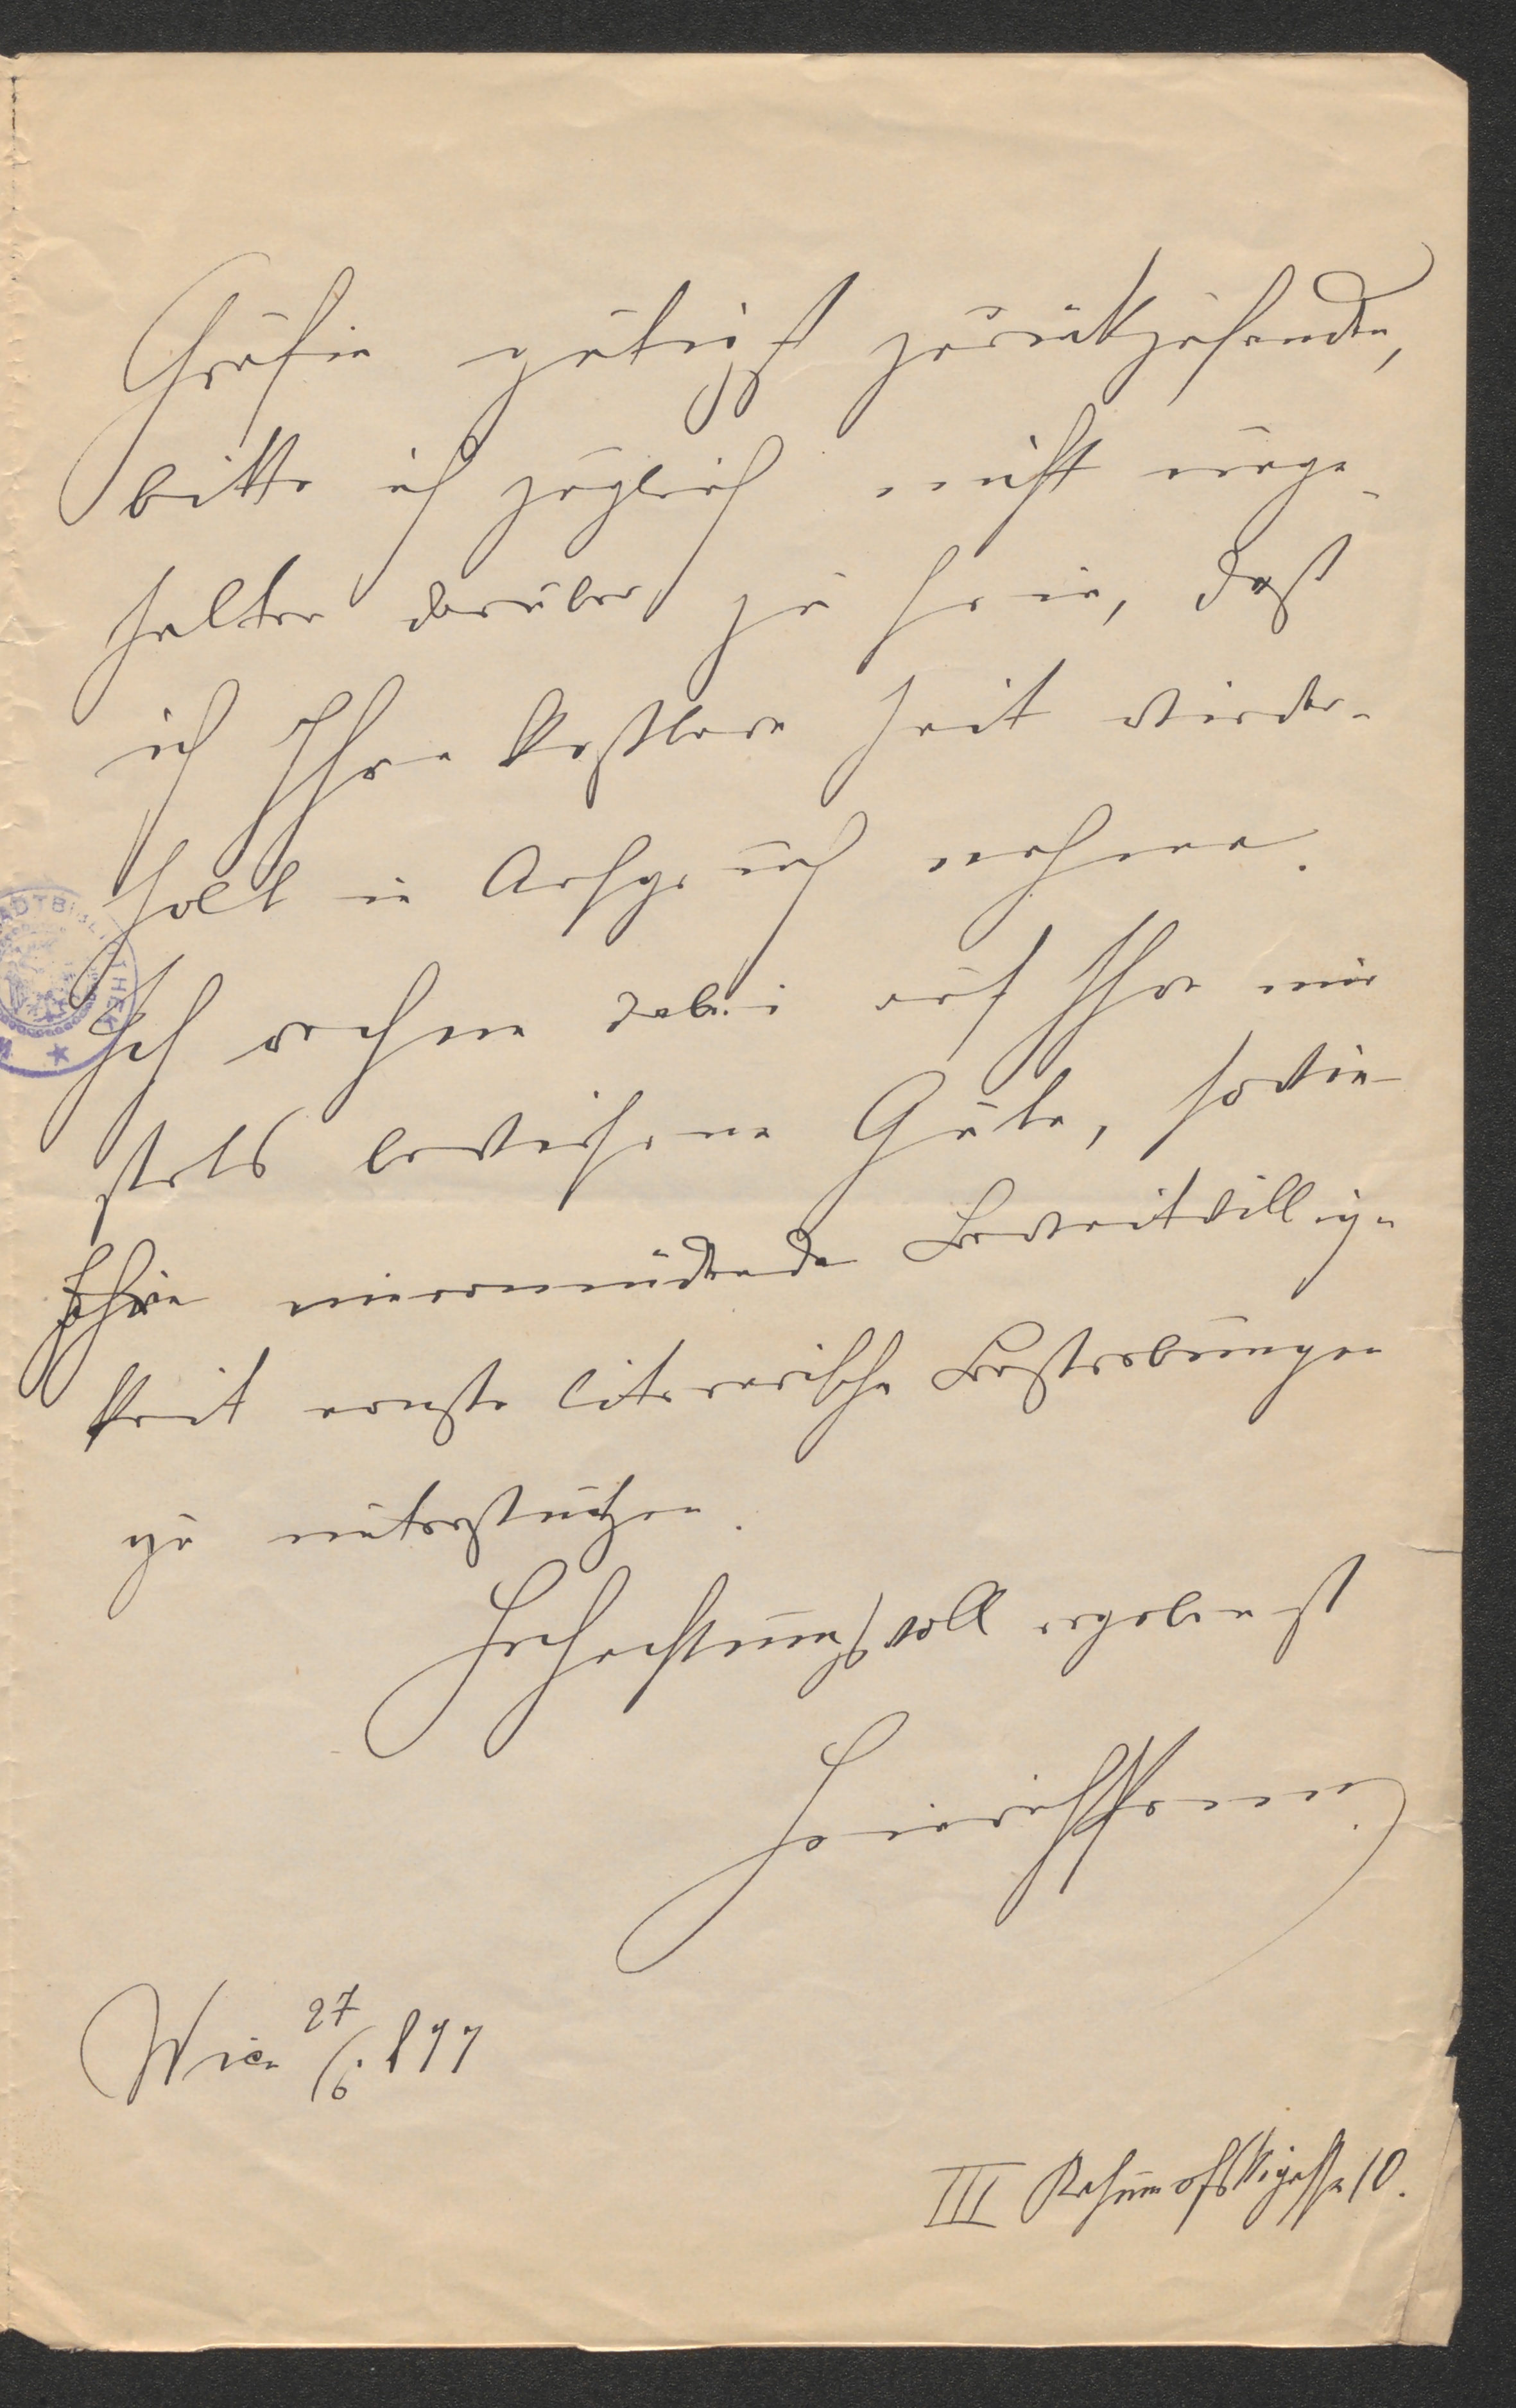 Gräfin gütigst zurückzusenden,
bitte ich zugleich nicht unge-
halten darüber zu sein, daß
ich Ihre kostbare Zeit wieder-
holt in Anspruch nehme.
Ich rechne dabei auf Ihre mir
stets bewiesene Güte, sowie
Ihre nie ermüdende Bereitwillig-
keit ernste literarische Bestrebungen
zu unterstützen.
Hochachtungsvoll ergebenst
Heinrich
Wien 27/6. 877
III Rasumofskigasse 10.
STADTBIBLIOTHEK